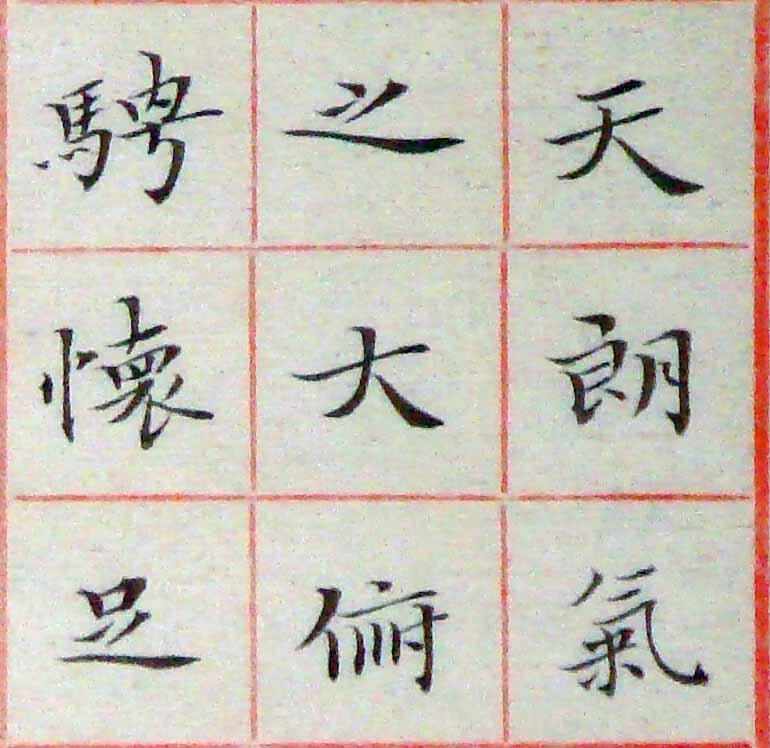 天朗氣
之大俯
騁懷足